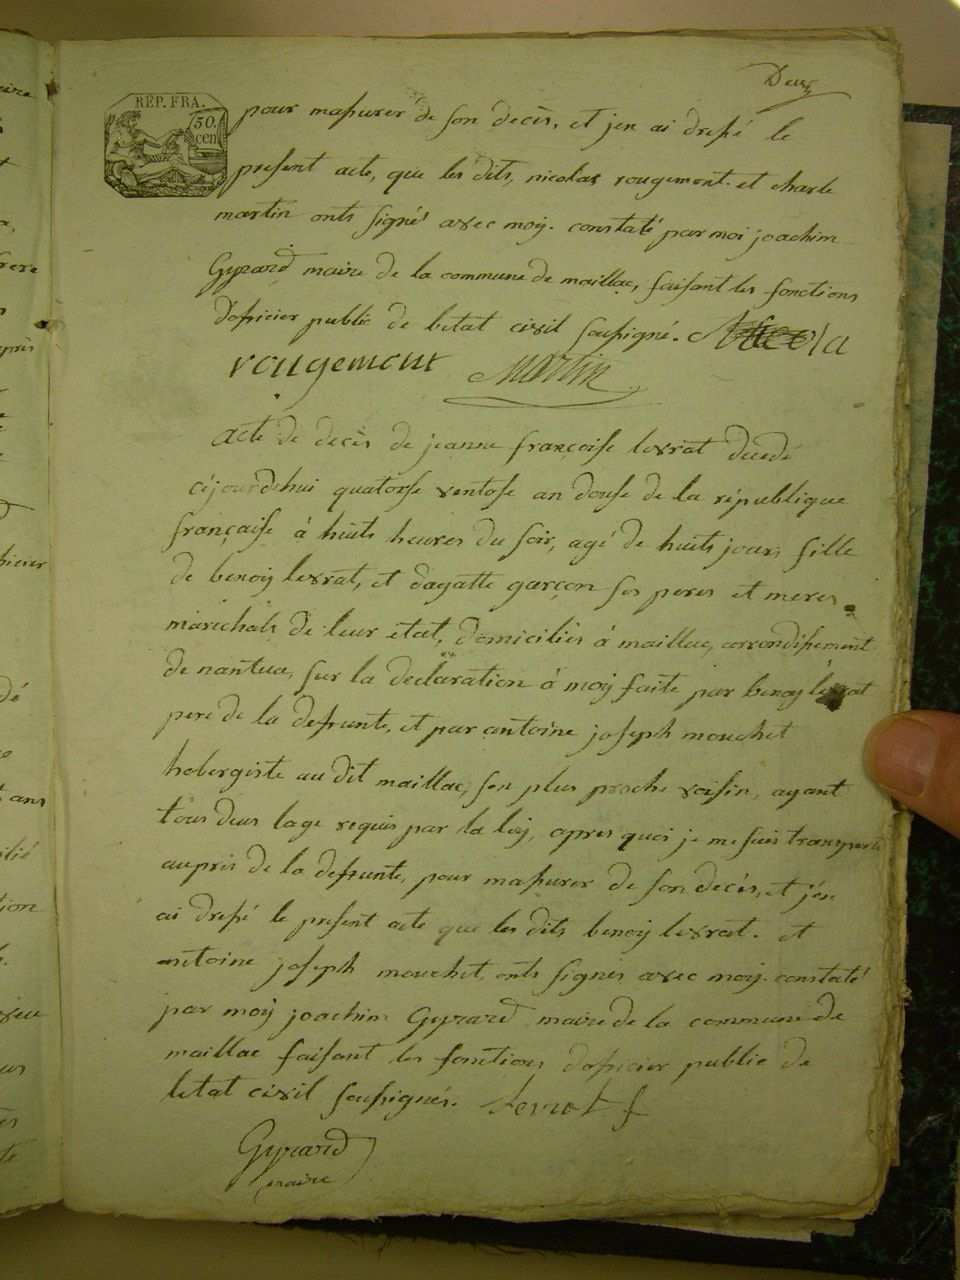 Deux
REP. FRA.
50.
cen
pour massurer de son decès, et jen ai dressé le
present acte, que les dits, nicolas rougemont. et charle
martin onts signé avec moy. constaté par moi joachim
Gyrard maire de la commune de maillac, faisant les fonctions
dofficier public de letat civil soussigné.
rougemont Martin
acte de decès de jeanne françoise levrat decedé
cejourdehui quatorse ventose an douse de la république
française à huits heures du soir, agé de huits jours fille
de benoy levrat, et dagatte garçon ses peres et meres
maréchals de leur état, domiciliés à maillac, arrondissement
de nantua, sur la declaration à moy faite par benoy levrat
pere de la defunte, et par antoine joseph mouchet
hobergiste au dit maillac, son plus proche voisin, ayant
tous deus lage requis par la loy, apres quoi je me suis transporté
aupris de la defunte, pour massurer de son decès, et jén
ai dressé le present acte que les dits benoy levrat. et
antoine joseph mouchet, onts signés avec moy. constaté
par moy joachim Gyrard maire de la commune de
maillac faisant les fonctions dofficier public de
letat civil soussignés. Levrat
Gyrard
maire